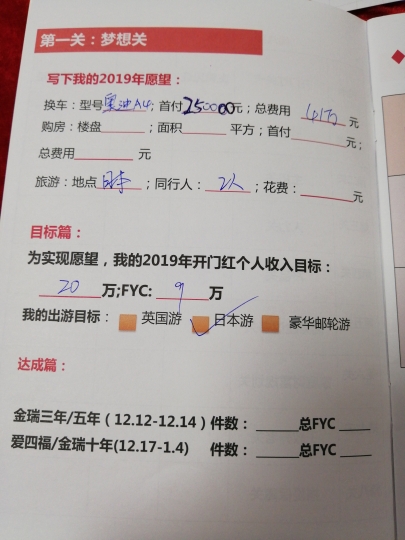 第一关：梦想关
写下我的2019年愿望：
换车：型号奥迪A4；首付250000元；总费用 41万 元
购房：楼盘______；面积______ 平方；首付______元；
总费用______ 元
旅游：地点 日本；同行人：2人；花费：______元
目标篇：
为实现愿望，我的2019年开门红个人收入目标：
20 万;FYC: 9 万
我的出游目标： 英国游 日本游 豪华邮轮游
达成篇：
金瑞三年/五年（12.12-12.14）件数：______总FYC ____
爱四福/金瑞十年(12.17-1.4) 件数：______总FYC ____